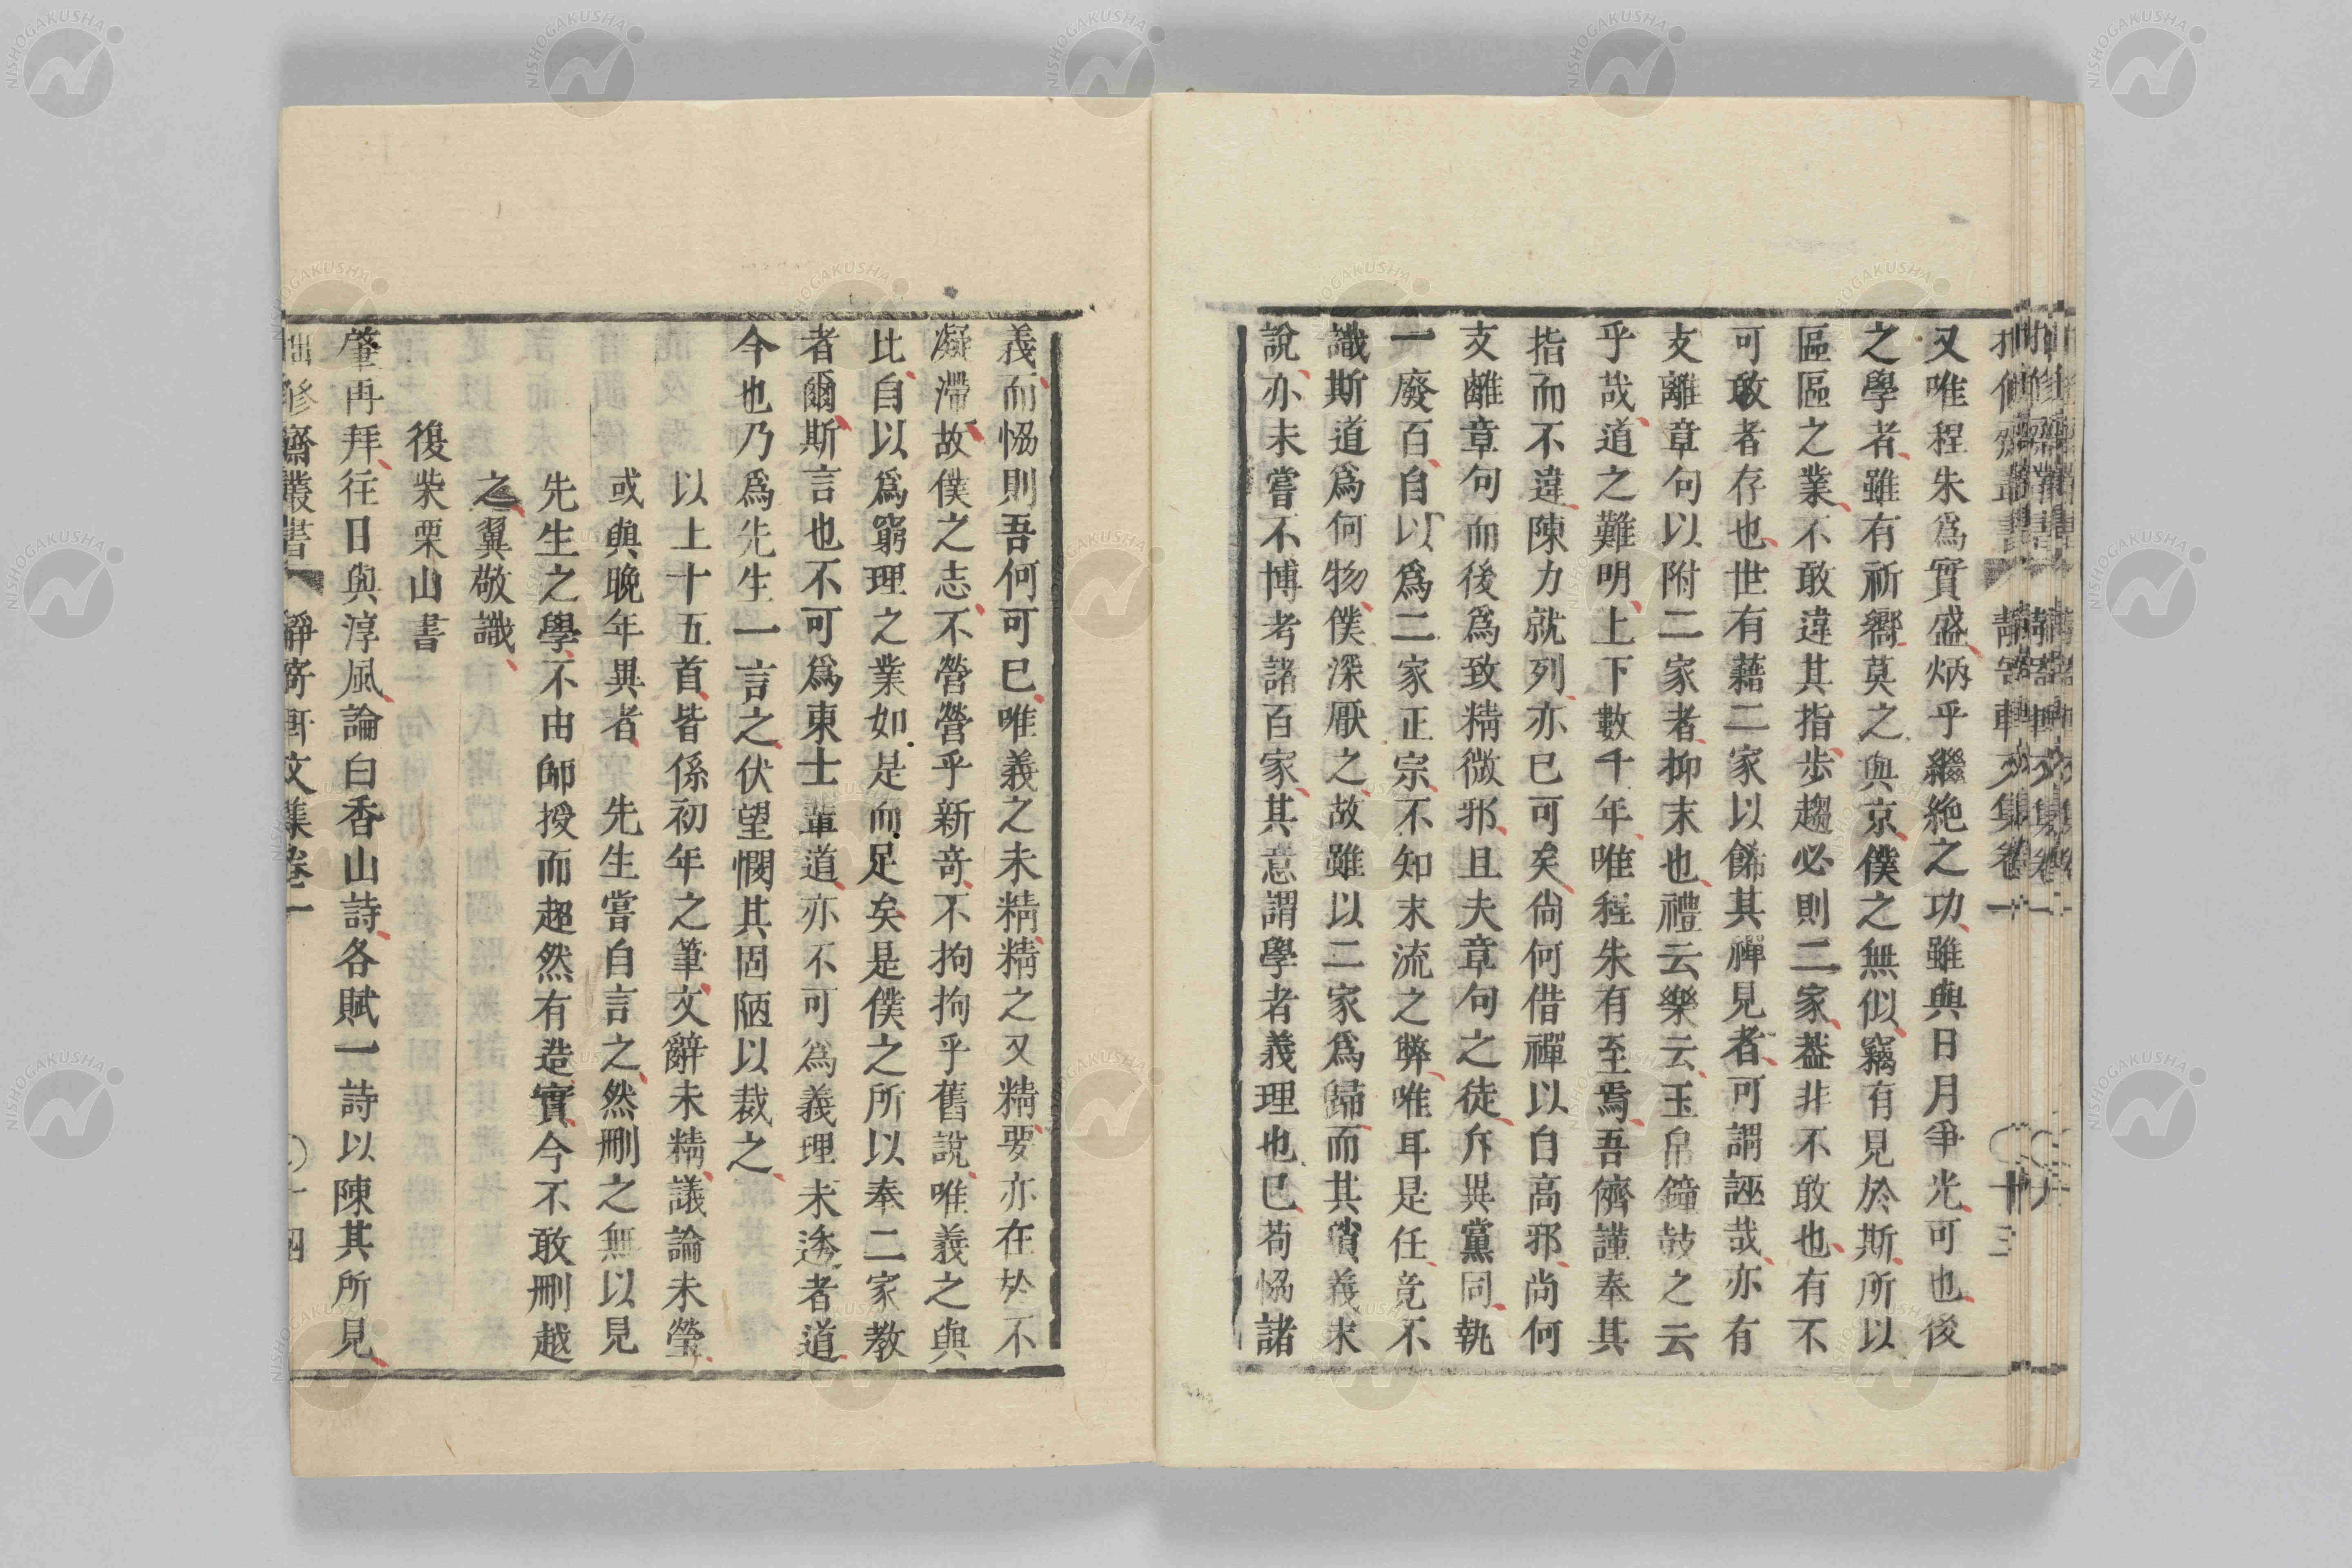 又唯程朱爲實盛炳乎繼絶之功雖與日月爭光可也後
之學者雖有祈嚮莫之與京僕之無似竊有見於斯所以
區區之業不敢違其指歩趨必則二家葢非不敢也有不
可敢者存也世有藉二家以餙其禪見者可謂誣哉亦有
支離章句以附二家者抑末也禮云樂云玉帛鐘鼓之云
乎哉道之難明上下數千年唯程朱有至焉吾儕謹奉其
指而不違陳力就列亦已可矣尙何借禪以自高邪尚何
支離章句而後爲致精微邪且夫章句之徒斥異黨同執
一廢百自以爲二家正宗不知末流之弊唯耳是任竟不
識斯道爲何物僕深厭之故雖以二家爲歸而其肯義未
說亦未嘗不博考諸百家其意謂學者義理也已苟恊諸
義而恊則吾何可已唯義之未精精之又精要亦在於不
凝滯故僕之志不營營乎新奇不拘拘乎舊說唯義之與
比自以爲窮理之業如是而足矣是僕之所以奉二家教
者爾斯言也不可爲東士輩道亦不可爲義理未透者道
今也乃爲先生一言之伏望憫其固陋以裁之
以上十五首皆係初年之筆文辭未精議論未瑩
或與晩年異者先生嘗自言之然刪之無以見
先生之學不由師授而超然有造實今不敢刪越
之翼敬識
復柴栗山書
肇再拜往日與淳風論白香山詩各賦一詩以陳其所見
拙修齋叢書 靜寄軒文集卷一 〇十四